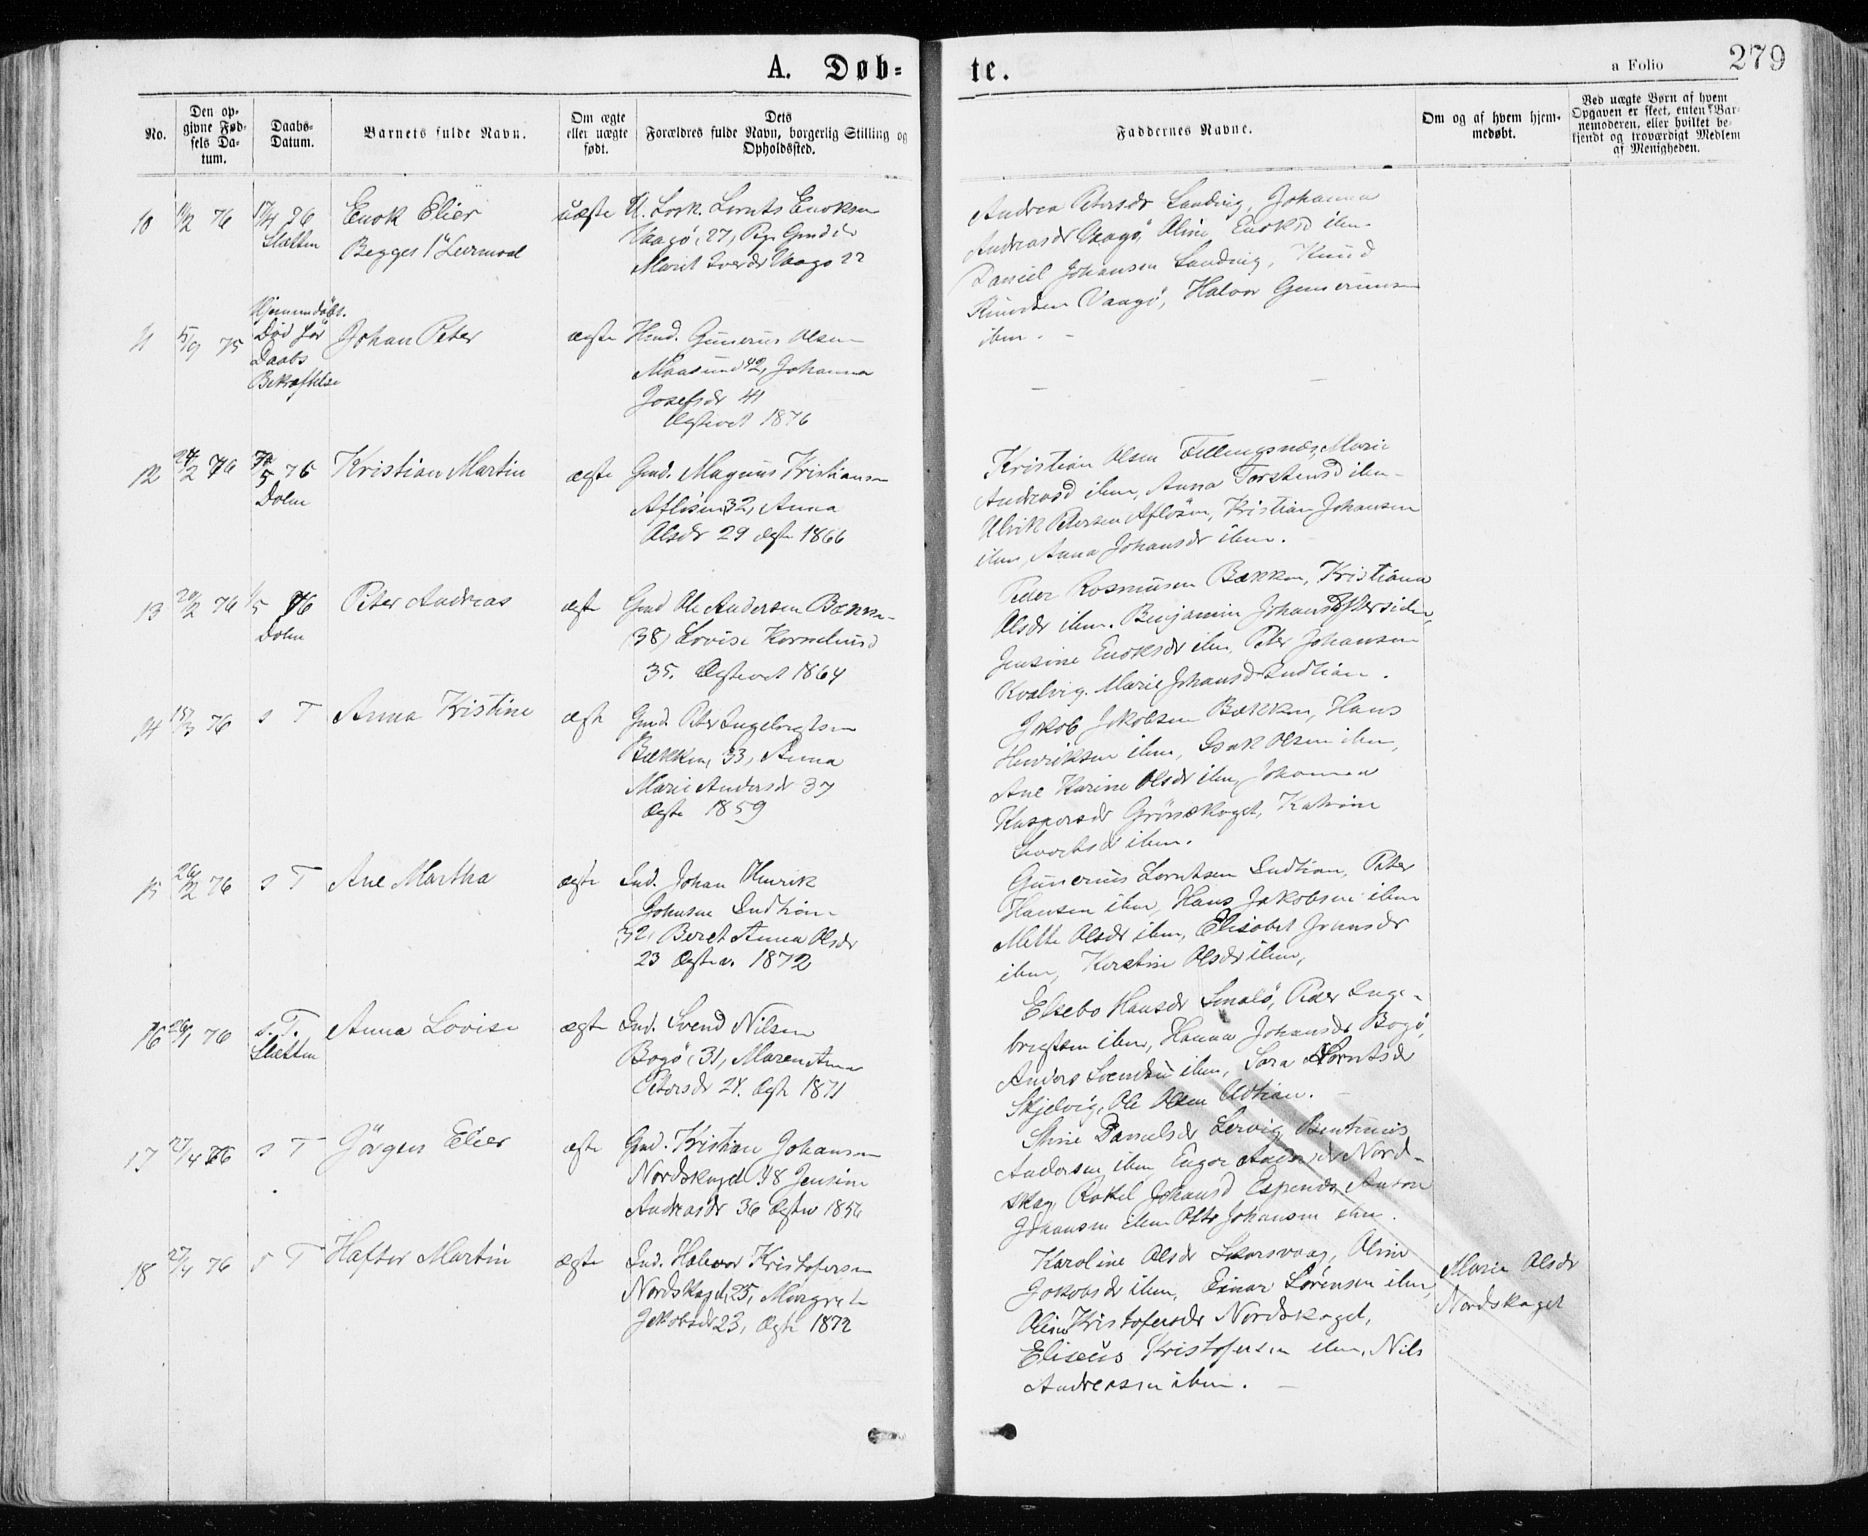 A. Døb-
te.
a Folio
279
No.
Den op-
givne Fød-
sels Da-
tum.
Daabs-
Datum.
Barnets fulde Navn.
Om ægte
eller uægte
født.
Dets
Forældres fulde Navn, borgerlig Stilling og
Opholdssted.
Faddernes Navne.
Om og af hvem hjem-
medøbt.
Ved uægte Børn af hvem
Opgaven er skeet, enten Bar-
nemoderen, eller hvilket be-
kjendt og troværdigt Medlem
af Menigheden.
10
76
Slatten
Enok Elier
Begges 1ste Leiermaal
uægte
Lornts Enoksen
Vaagø, 27, Pige
Marit
Vaagø 22
Andrea Petersdr Sandvig, Johanna
Andreasdr Vaagø, Oline Enoksd ibm.
Daniel Johansen Sandvig, Knud
Knudsen Vaagø, Halvor Guneriussen
ibm. -
11
5/9 75
Hjemmedøbt.
Død før
Daabs
Bekræftelse
Johan Peter
ægte
Gunerius Olsen
Maasund 42, Johanna
Josefsdr 41
Ægteviet 1876
12
24/2 76
5 76
Dolm
Kristian Martin
ægte
Gmd. Magnus Kristiansen
Afløsen 32, Anna
Olsdr 29 ægte 1866
Kristian Olsen Fillingsnæs, Marie
Andreasd ibm, Anna Torstensd ibm-
Ulrik Petersen Afløsen, Kristian Johansen
ibm, Anna Johansdr ibm.
13
20/2 76
1/5 76
Dolm
Peter Andreas
ægte
Gmd Ole Andersen Bækken
(38) Lovise Korneliusd
35. Ægteviet 1864
Peder Rasmusen Bækken, Kristiana
Olsdr ibm. Benjamin Johansen
Jensine Enoksdr ibm, Peter Johansen
Kvalvig. Marie Johansd Undtian.
14
15/3 76
s T
Anna Kristine
ægte
Gmd. Peter Ingebrigtsen
Bækken, 33, Anna
Marie Andersdr 37
Ægte 1859
Jakob Jakobsen Bækken, Hans
Henriksen ibm, Isak Olsen ibm,
Ane Karine Olsdr ibm, Johanna
Kaspersdr Grønskaget, Katrine
ibm.
15
26/2 76
s T
Ane Martha
ægte
Ind. Johan Henrik
Johnsen Undtian
32, Beret Anna Olsdr
23 Ægtev. 1872
Gunerius Lorntsen Undtian, Peter
Hansen ibm, Hans Jakobsen ibm
Mette Olsdr ibm, Elisabet Jonasdr
ibm, Kirstine Olsdr ibm,
16
26/1 76
s. T.
Slatten
Anna Lovise
ægte
Ind. Svend Nilsen
Bogø (31, Maren Anna
Petersdr 24. Ægte 1871
Elsebo Hansdr Smalø, Peder Inge-
brigtsen ibm, Hanna Johansdr Bogø,
Anders Svendsen ibm, Sara Lorntsdr
Skjelvig, Ole Olsen Udtian. -
17
27/4 76
s T
Jørgen Elier
ægte
Gmd. Kristian Johansen
Nordskaget 48 Jensine
Andreasdr 36 Ægtev 1856
Stine Danielsdr Lervig, Bentinus
Andersen ibm Nord-
skag, Rakel Johansd Espenes, Anton
Johansen ibm Peter Johansen ibm.
18
27/4 76
s T
Haftor Martin
ægte
Ind. Halvor Kristofersen
Nordskaget, 25, Margrete
Jakobsdr 23, Ægte 1872
Karoline Olsdr Skarsvaag, Oline
Jakobsdr ibm, Einar Sørensen ibm,
Oline Kristofersdr Nordskaget,
Eliseus Kristofersen ibm, Nils
Andreassen ibm. -
Marie Olsdr
Nordskaget